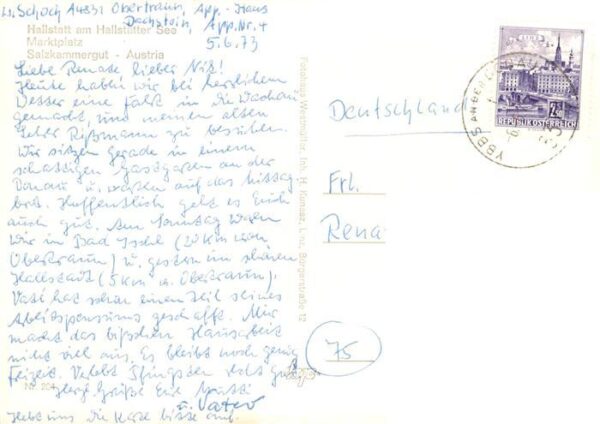 Schoch A4831 Obertraun, App.-Haus
Dachstein, App.Nr. 4
5.6.73
Hallstatt am Hallstätter See
Marktplatz
Salzkammergut - Austria
Liebe Renate lieber
Heute haben wir bei herrlichem
Wetter eine Fahrt in die Wachau
gemacht, um meinen alten
Lehrer Rißmann zu besuchen.
Wir sitzen gerade in einem
schattigen Gastgarten an der
Donau u. warten auf das Mittag-
brot. Hoffentlich geht es Euch
auch gut. Am Sonntag waren
wir in Bad Ischl (20 km von
Obertraun) u. gestern im schönen
Hallstadt (5 km v. Obertraun).
Vati hat schon einen Teil seines
Arbeitspensums geschafft. Mir
macht das bißchen Hausarbeit
nicht viel aus. Es bleibt noch genug
Freizeit. Verlebt Pfingsten recht gut
Herzl. Grüße Eure Mutti
u. Vater
Hebt uns die Karte bitte auf.
Nr. 204
Deutschland
Frl.
Rena
75
LINZ
REPUBLIK ÖSTERREICH
YBBS AN DER DONAU